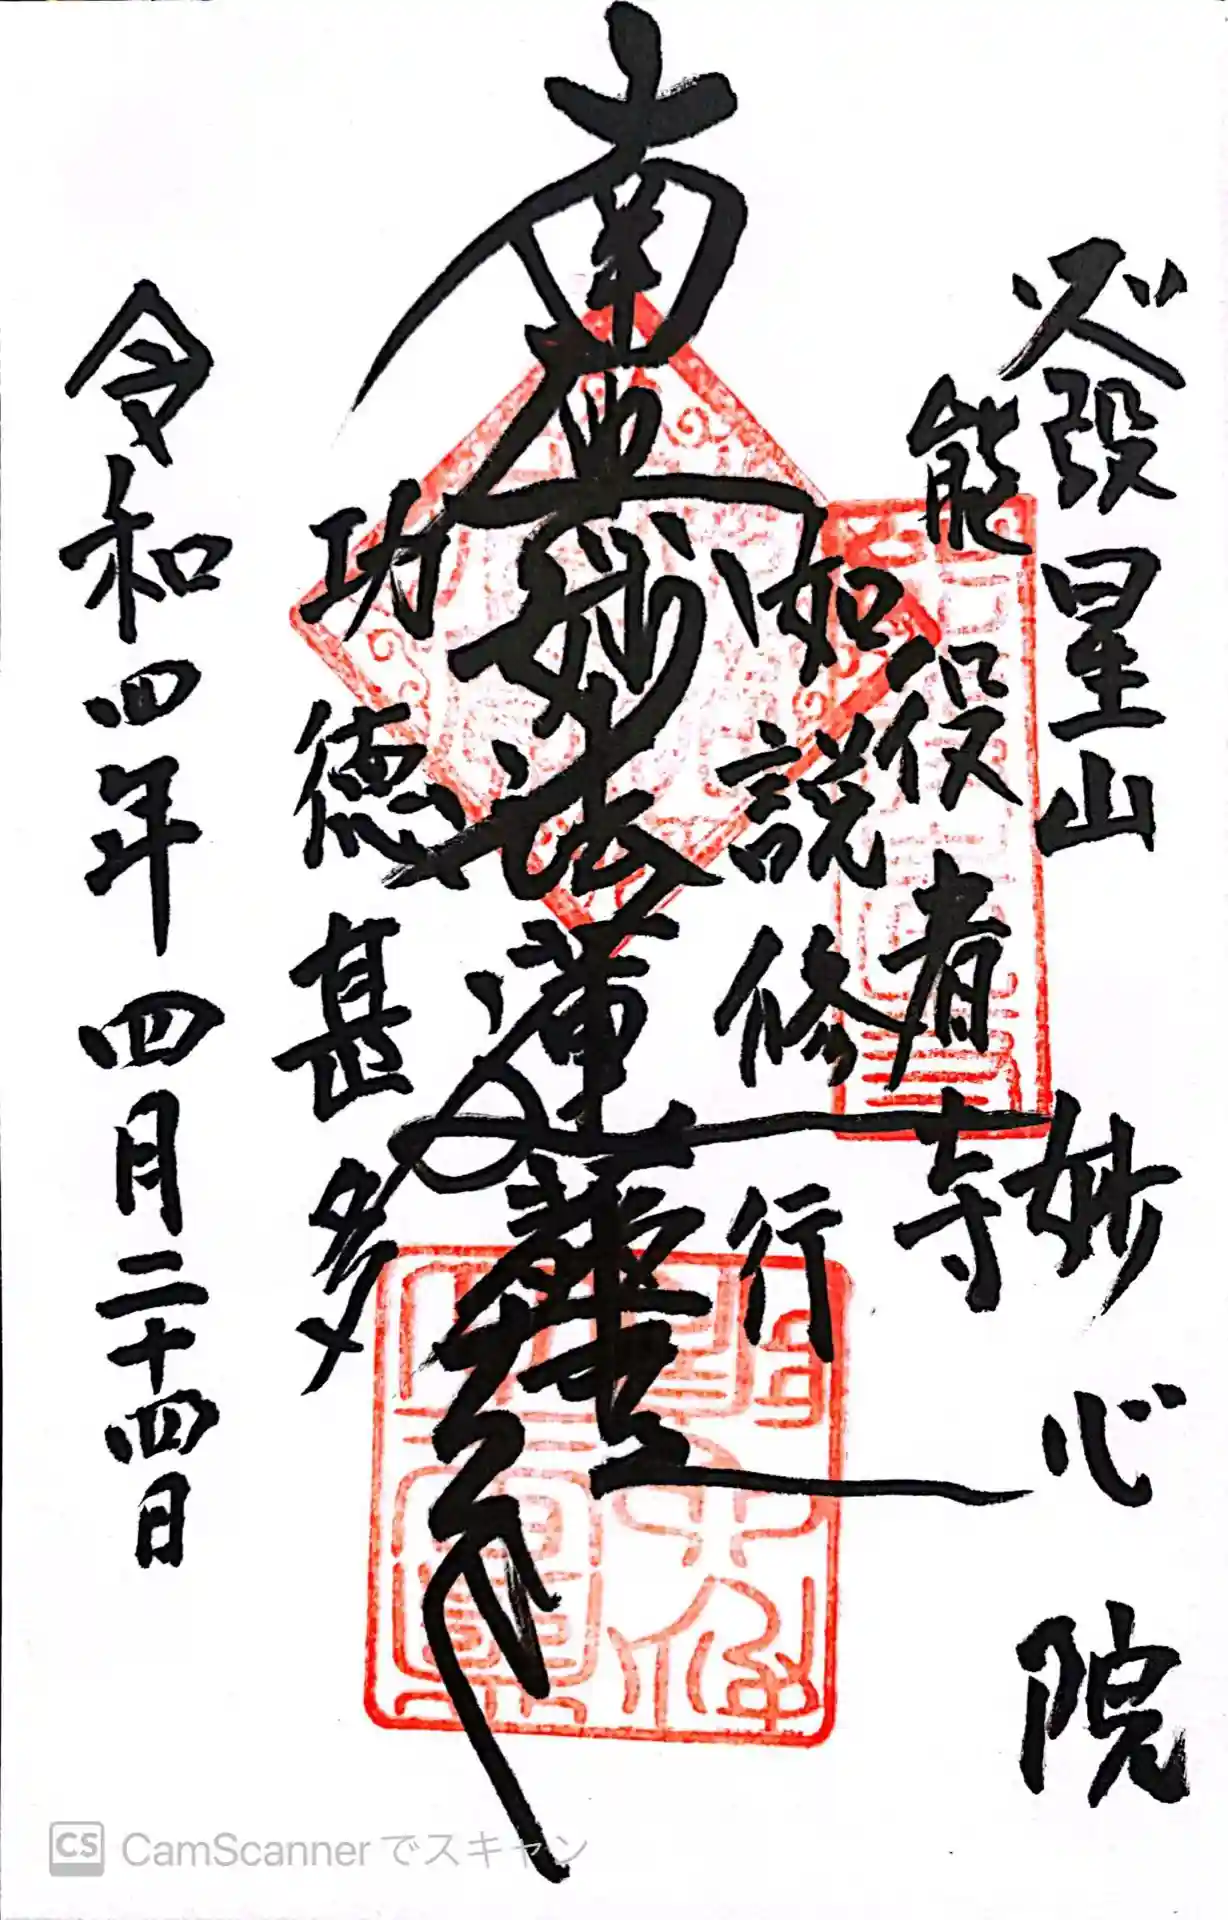 發星山 妙心院
能役者寺
如説修行
南無妙法蓮華經
功徳甚多
令和四年四月二十四日
CS CamScannerでスキャン